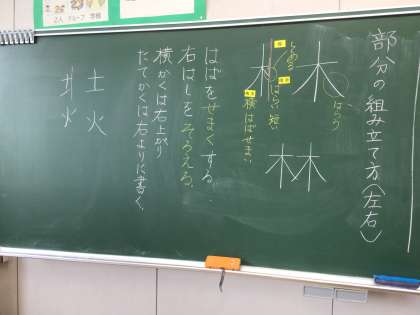 部分の組み立て方(左右)
木
はらう
木
とめる
はらい 短い
横はばせまい
林
はばをせまくする。
右はしをそろえる。
横かくは右上がり
たてかくは右よりに書く。
土 火
土 火